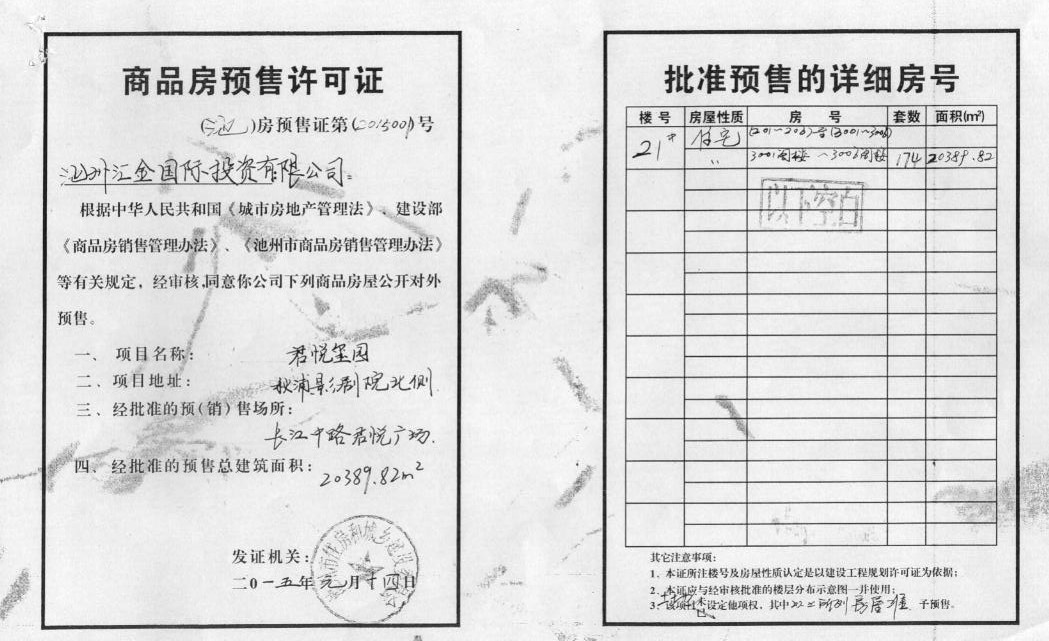 商品房预售许可证
)房预售证第(2015001)号
池州汇金国际投资有限公司：
根据中华人民共和国《城市房地产管理法》、建设部
《商品房销售管理办法》、《池州市商品房销售管理办法》
等有关规定，经审核,同意你公司下列商品房屋公开对外
预售。
一、项目名称：君悦玺园
二、项目地址：秋浦影剧院北侧
三、经批准的预(销)售场所：
长江中路君悦广场.
四、经批准的预售总建筑面积：20389.82m²
发证机关：
二0一五年元月十四日
批准预售的详细房号
楼号 房屋性质 房号 套数 面积(㎡)
21# 住宅 (201～206)至(3001～3006)
〃 3001阁楼～3006阁楼 174 20389.82
以下空白
其它注意事项：
1、本证所注楼号及房屋性质认定是以建设工程规划许可证为依据；
2、本证应与经审核批准的楼层分布示意图一并使用；
3、该项 设定他项权，其中 所列房屋准 予预售。